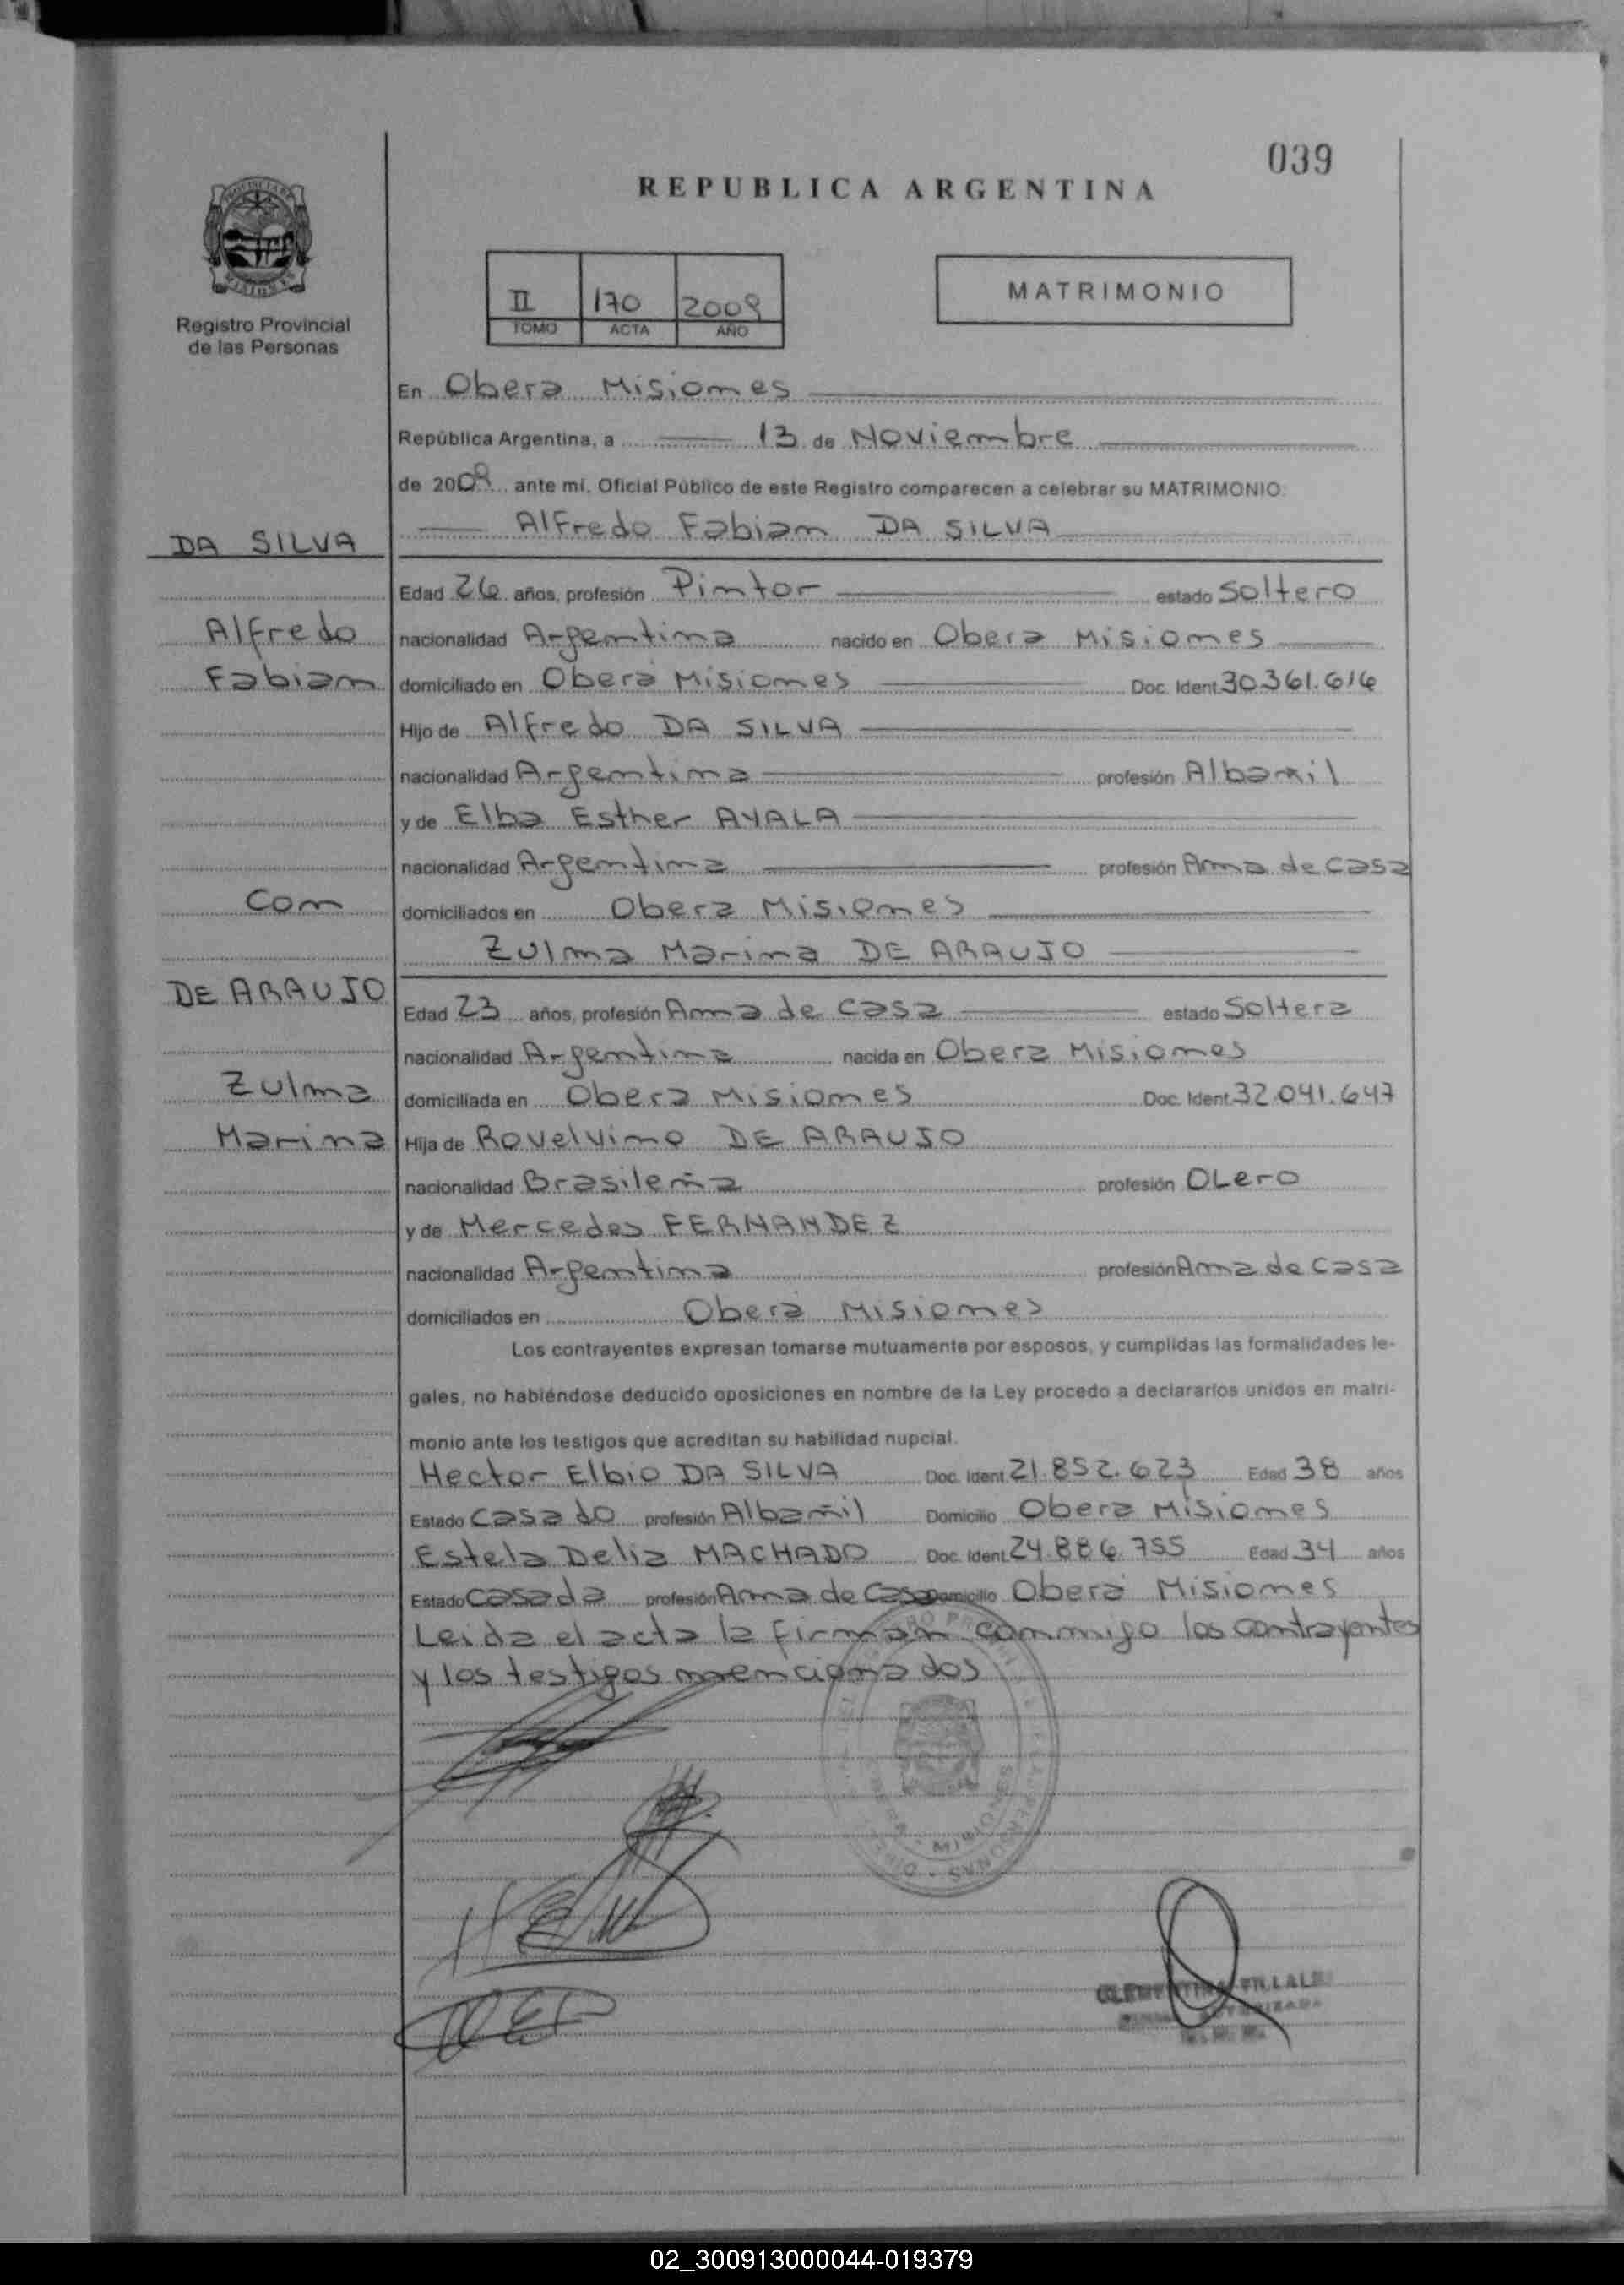 039
REPUBLICA ARGENTINA
Registro Provincial
de las Personas
II 170 2009
TOMO ACTA AÑO
MATRIMONIO
En Obera Misiones
República Argentina, a 13 de Noviembre
de 2009 ante mí, Oficial Público de este Registro comparecen a celebrar su MATRIMONIO:
Alfredo Fabian DA SILVA
DA SILVA
Edad 26 años, profesión Pintor estado Soltero
Alfredo
nacionalidad Argentina nacido en Obera Misiones
Fabian
domiciliado en Oberá Misiones Doc. Ident. 30.361.616
Hijo de Alfredo DA SILVA
nacionalidad Argentina profesión Albañil
y de Elba Esther AYALA
nacionalidad Argentina profesión Ama de casa
Con
domiciliados en Obera Misiones
Zulma Marina DE ARAUJO
DE ARAUJO
Edad 23 años, profesión Ama de casa estado Soltera
nacionalidad Argentina nacida en Obera Misiones
Zulma
domiciliada en Obera Misiones Doc. Ident. 32.041.647
Marina
Hija de Rovelvino DE ARAUJO
nacionalidad Brasileña profesión OLero
y de Mercedes FERNANDEZ
nacionalidad Argentina profesión Ama de casa
domiciliados en Oberá Misiones
Los contrayentes expresan tomarse mutuamente por esposos, y cumplidas las formalidades le-
gales, no habiéndose deducido oposiciones en nombre de la Ley procedo a declararlos unidos en matri-
monio ante los testigos que acreditan su habilidad nupcial.
Hector Elbio DA SILVA Doc. Ident. 21.852.623 Edad 38 años
Estado Casado profesión Albañil Domicilio Obera Misiones
Estela Delia MACHADO Doc. Ident. 24.886.755 Edad 34 años
Estado Casada profesión Ama de Casa Domicilio Oberá Misiones
Leida el acta la firman conmigo los contrayentes
y los testigos mencionados
02_300913000044-019379